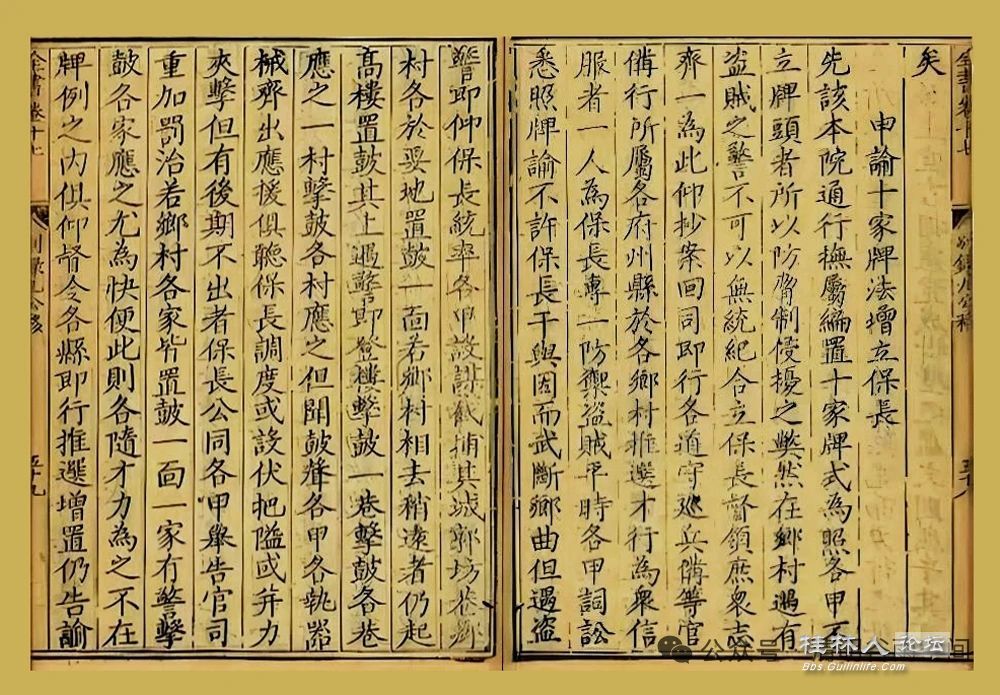 全書卷十七
五十八
矣
申諭十家牌法增立保長
先該本院通行撫屬編置十家牌式為照各甲不
立牌頭者所以防脅制侵擾之弊然在鄉村遇有
盜賊之警不可以無統紀合立保長督領庶衆志
齊一為此仰抄案回同即行各道守巡兵備等官
備行所屬各府州縣於各鄉村推選才行為衆信
服者一人為保長專一防禦盜賊平時各甲詞訟
悉照牌諭不許保長干與因而武斷鄉曲但遇盜
警即仰保長統率各甲設謀截捕其城郭坊巷鄉
村各於要地置鼓一面若鄉村相去稍遠者仍起
高樓置鼓其上遇警即登樓擊鼓一巷擊鼓各巷
應之一村擊鼓各村應之但聞鼓聲各甲各執器
械齊出應援俱聽保長調度或設伏把隘或并力
夾擊但有後期不出者保長公同各甲舉告官司
重加罰治若鄉村各家皆置鼓一面一家有警擊
鼓各家應之尤為快便此則各隨才力為之不在
牌例之內俱仰督令各縣即行推選增置仍告諭
全書卷十七
五十九
公众号
桂林人论坛
Bbs.Guilinlife.Com